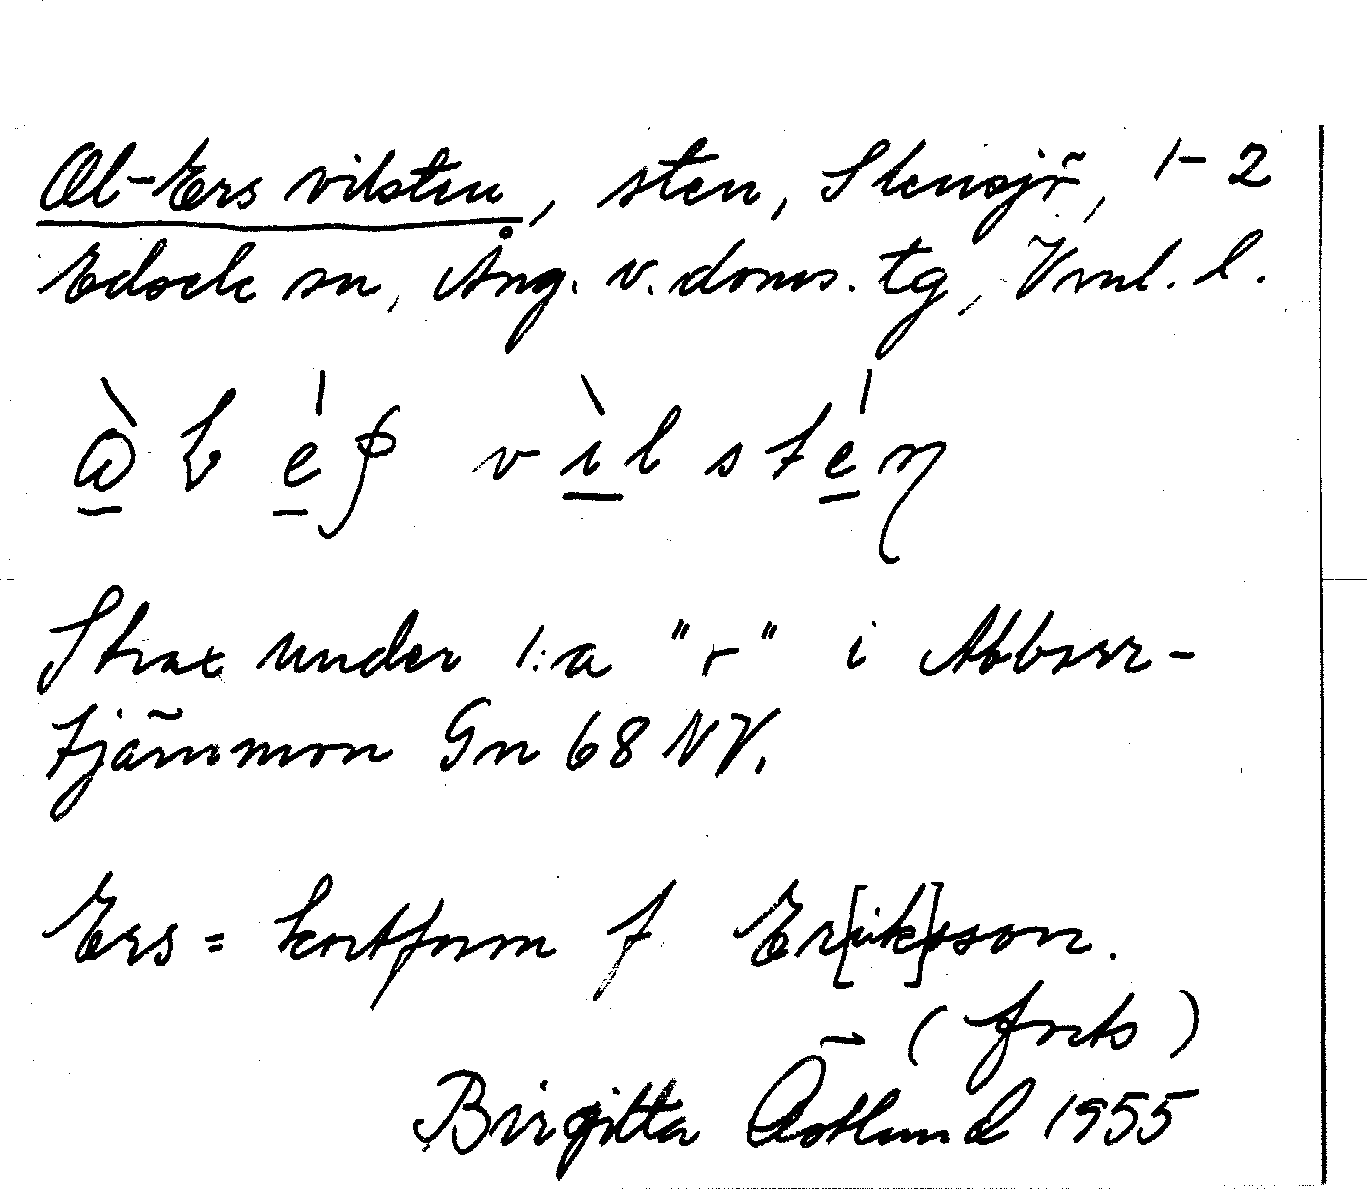 Ol-Ers vilsten, sten, Stensjö, 1-2
Edsele sn, Ång. v. doms. tg, Vnl. l.
Strax under 1:a "r" i Abborr-
tjärnmon Gn 68 NV.
Ers = kortform f Er[ik]sson.
(forts)
Birgitta Östlund 1955